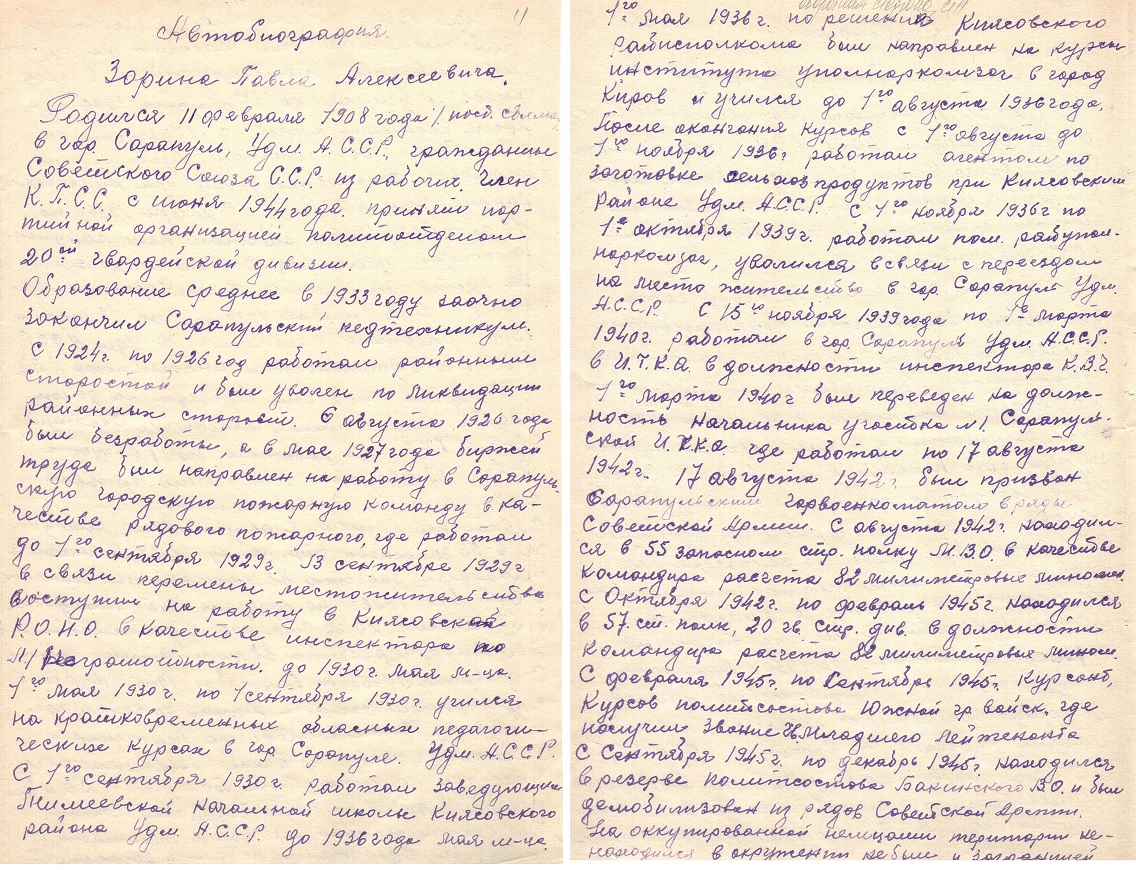 11
Автобиография.
Зорина Павла Алексеевича.
Родился 11 февраля 1908 года
в гор. Сарапуль, Удм. А.С.С.Р., гражданин
Советского Союза С.С.Р. из рабочих. Член
К.П.С.С. с июня 1944 года. принят пар-
тийной организацией политотделом
20ой гвардейской дивизии.
Образование среднее в 1933 году заочно
закончил Сарапульский педтехникум.
С 1924 г. по 1926 год работал районным
старостой и был уволен по ликвидации
районных старост. С августа 1926 года
был безработн, а в мае 1927 года биржей
труда был направлен на работу в Сарапуль-
скую городскую пожарную команду в ка-
честве рядового пожарного, где работал
до 1го сентября 1929 г. В сентябре 1929 г.
в связи перемены местожительства
поступил на работу в Киясовской
Р.О.Н.О. в качестве инспектора по
неграмотности. до 1930 г. мая м-ца.
1го мая 1930 г. по 1 сентября 1930 г. учился
на кратковременных обласных педагоги-
ческих курсах в гор. Сарапуле. Удм. А.С.С.Р.
С 1го сентября 1930 г. работал заведующим
начальной школы Киясовского
района Удм. А.С.С.Р. до 1936 года мая м-ца.
1го мая 1936 г. по решению Киясовского
Райисполкома был направлен на курсы
института уполнаркомзаг в город
Киров и учился до 1го августа 1936 года.
После окончания курсов с 1го августа до
1го ноября 1936 г. работал агентом по
заготовке сельхозпродуктов при Киясовским
районе Удм. А.С.С.Р. С 1го ноября 1936 г. по
1е октября 1939 г. работал пом. райупол-
наркомзаг, уволился в связи с переездом
на место жительство в гор. Сарапуль Удм.
А.С.С.Р. С 15го ноября 1939 года по 1е марта
1940 г. работал в гор. Сарапуль Удм. А.С.С.Р.
в И.Т.К.А. в должности инспектора К.В.Ч.
1го марта 1940 г. был переведен на долж-
ность начальника участка №1, Сарапуль-
ской И.Т.К.А. где работал по 17 августа
1942 г. 17 августа 1942 г. был призван
Сарапульским горвоенкоматом в ряды
Советской Армии. С августа 1942 г. находил-
ся в 55 запасном стр. полку М.В.О. в качестве
командира расчета 82 милиметровые
С Октября 1942 г. по февраль 1945 г. находился
в 57. полк, 20 гв. стр. див. в должности
командира расчета 82 милиметровые
С февраля 1945 г. по Сентябрь 1945 г. курсант,
Курсов политсостава Южной гр. войск. где
получил звание Младшего лейтенанта
С Сентября 1945 г. по декабрь 1945 г. находился
в резерве политсостава Бакинского В.О. и был
демобилизован из рядов Советской Армии.
На оккупированной немцами територии не-
находился в окружении не был и заграницей